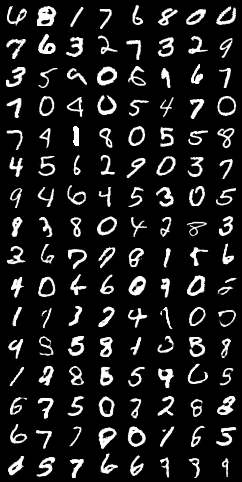 6 8 1 7 6 8 0 0
7 6 3 2 7 3 2 9
3 5 9 0 8 9 6 7
7 0 4 0 5 4 7 0
7 4 1 8 0 5 5 8
4 5 6 2 9 0 3 7
9 4 6 4 5 3 0 5
8 3 8 0 4 2 8 3
3 6 7 7 8 1 5 6
4 0 4 6 0 7 0 5
1 1 3 2 4 1 0 0
9 5 5 8 1 3 5 8
1 2 8 5 5 9 0 5
6 7 5 0 7 2 8 2
6 7 7 0 0 1 6 5
6 5 7 6 6 7 3 9